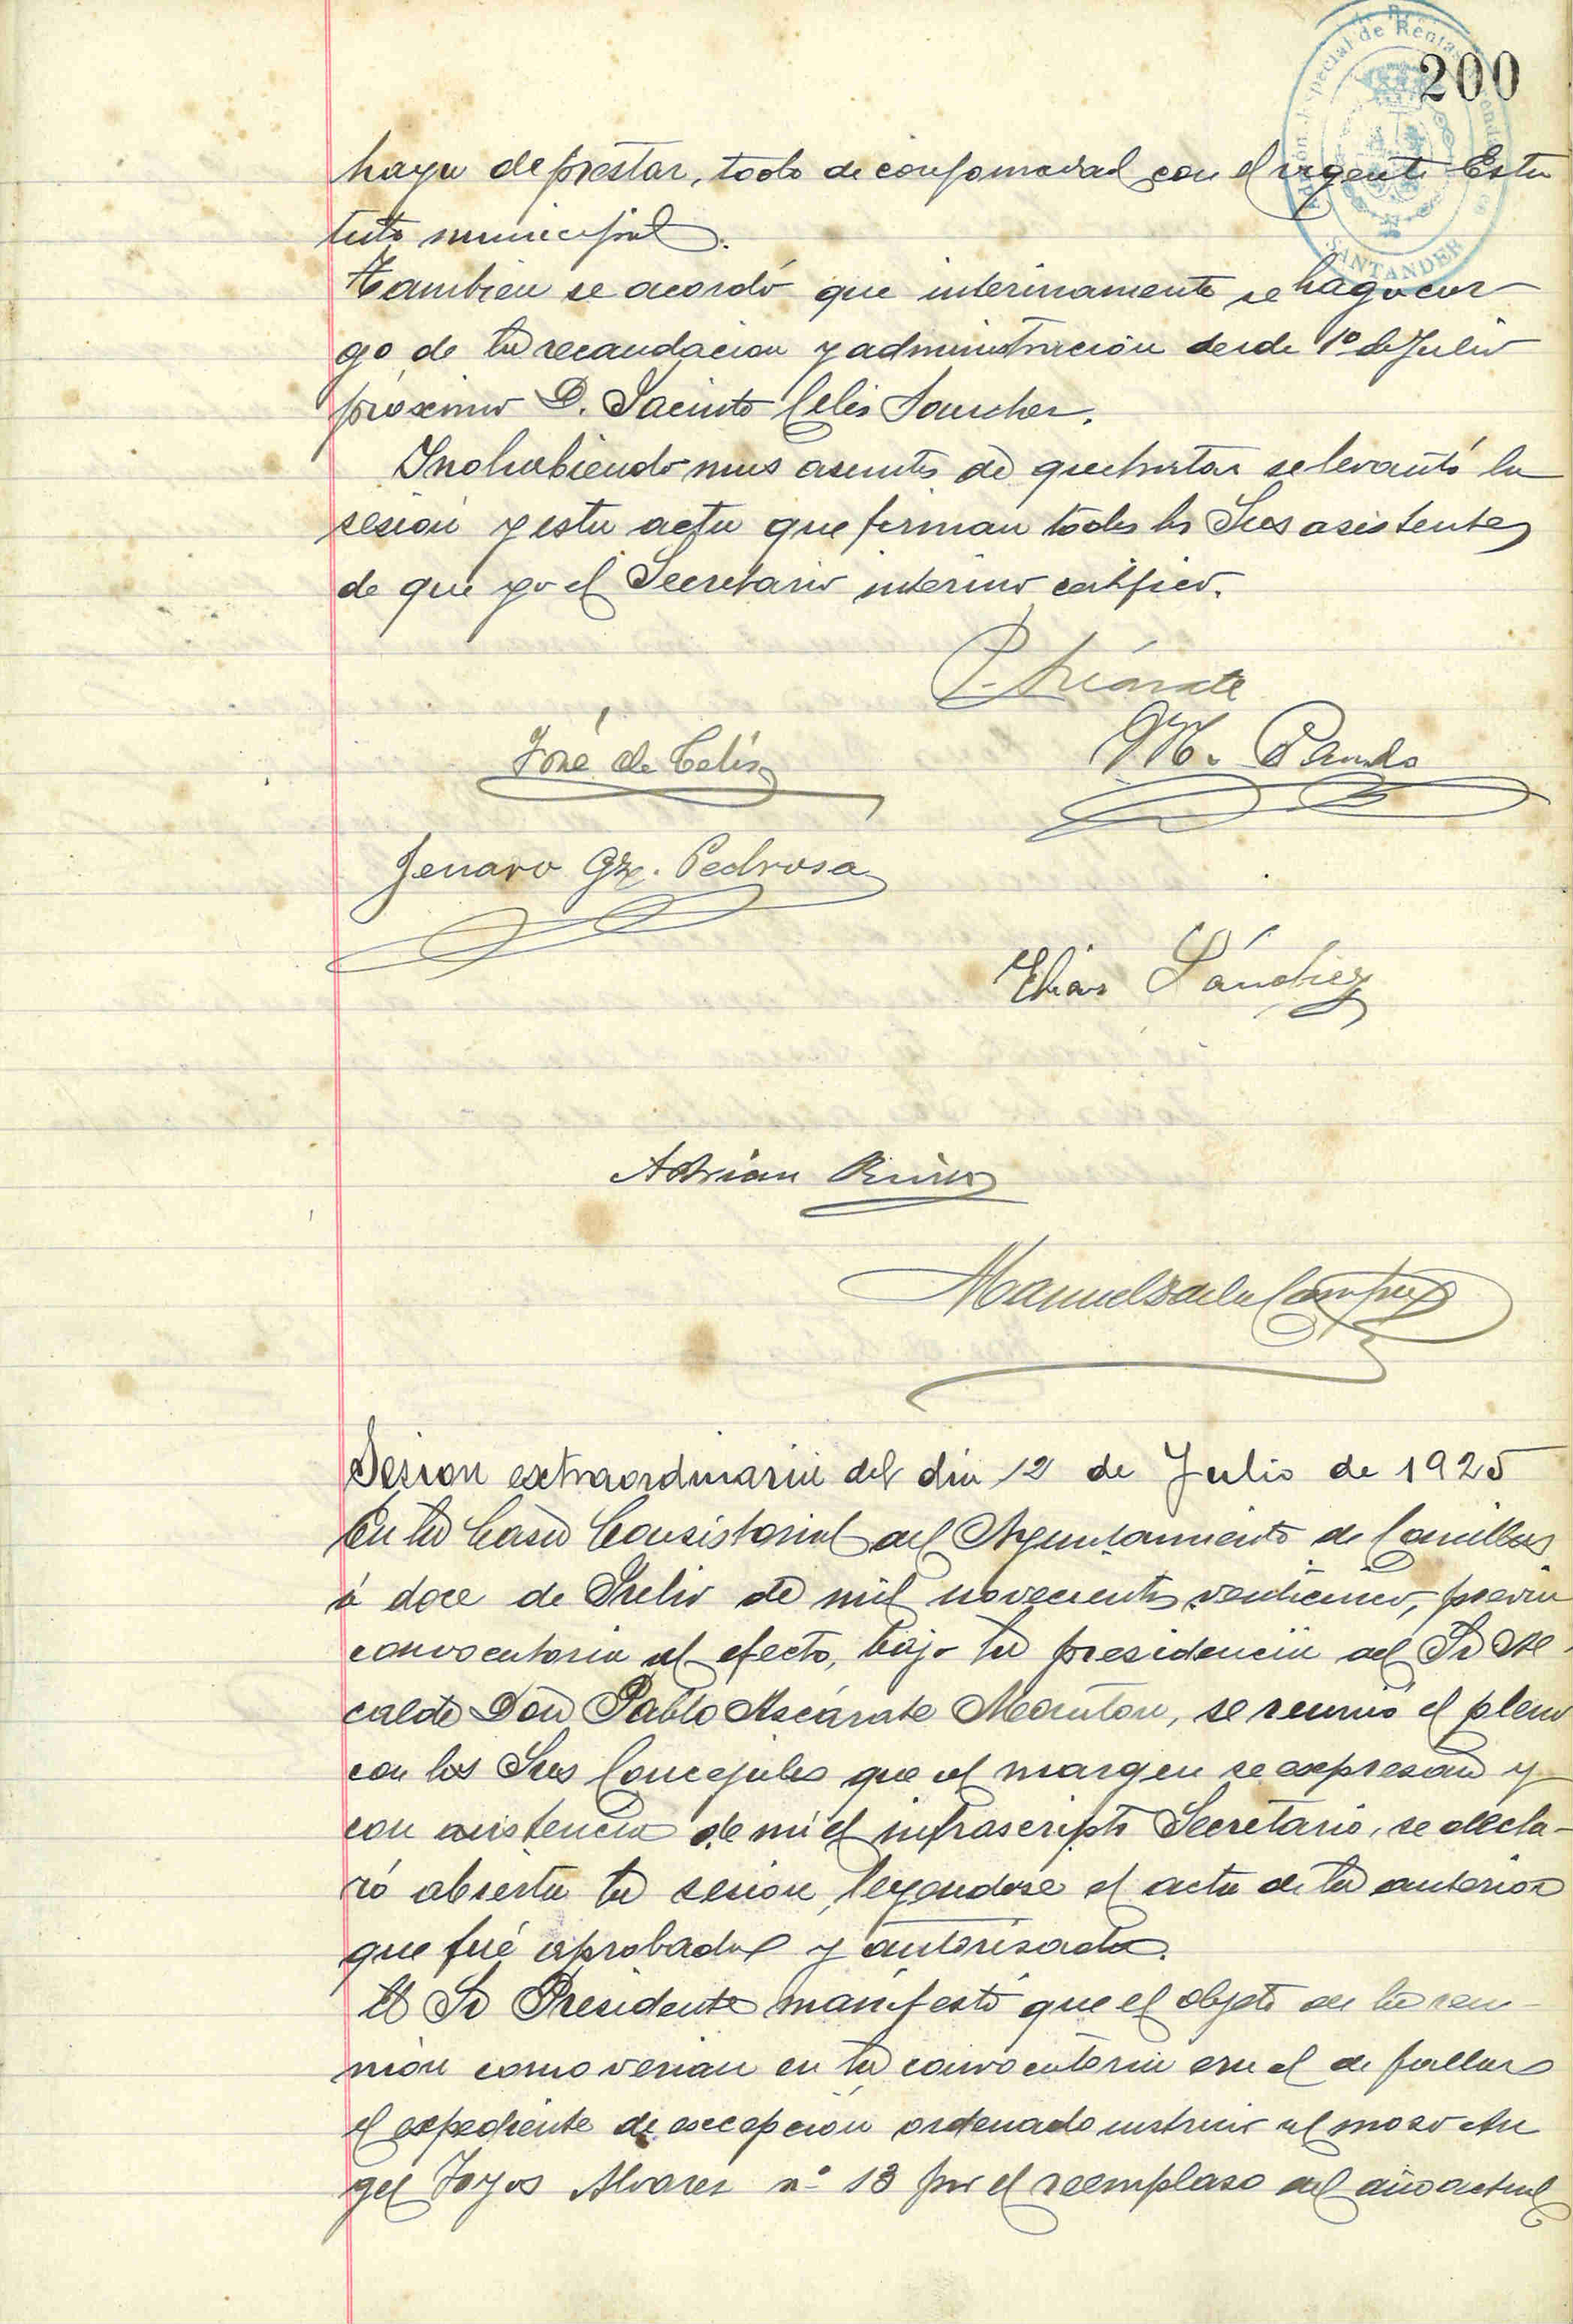 200
haya de prestar, todo de conformidad con el vigente Esta
tuto municipal.
Tambien se acordó que interinamente se haga car-
go de la recaudacion y administración desde 1º de Julio
próximo D. Jacinto Celis Sanchez.
Y no habiendo mas asuntos de que tratar se levantó la
sesión y esta acta que firman todos los Sres asistentes
de que yo el Secretario interino certifico.
P. Azcárate
José de Celis
M. Pando
Jenaro Gz. Pedrosa
Elias Sánchez
Adrian
Manuel
Sesion extraordinaria del dia 12 de Julio de 1925
En la Casa Consistorial del Ayuntamiento de Comillas
á doce de Julio de mil novecientos veinticinco, previa
convocatoria al efecto, bajo la presidencia del Sr Al-
calde Don Pablo Azcárate Manton, se reunió el pleno
con los Sres Concejales que al margen se expresan y
con asistencia de mi el infrascripto Secretario, se decla-
ró abierta la sesion, leyendose el acta de la anterior
que fué aprobada y autorisada.
El Sr Presidente manifestó que el objeto de la reu-
nión como verian en la convocatoria era el de fallar
el expediente de excepción ordenado instruir al mozo An
gel Toyos Alvarez nº 13 por el reemplaso del año actual
Especial de Rentas
SANTANDER